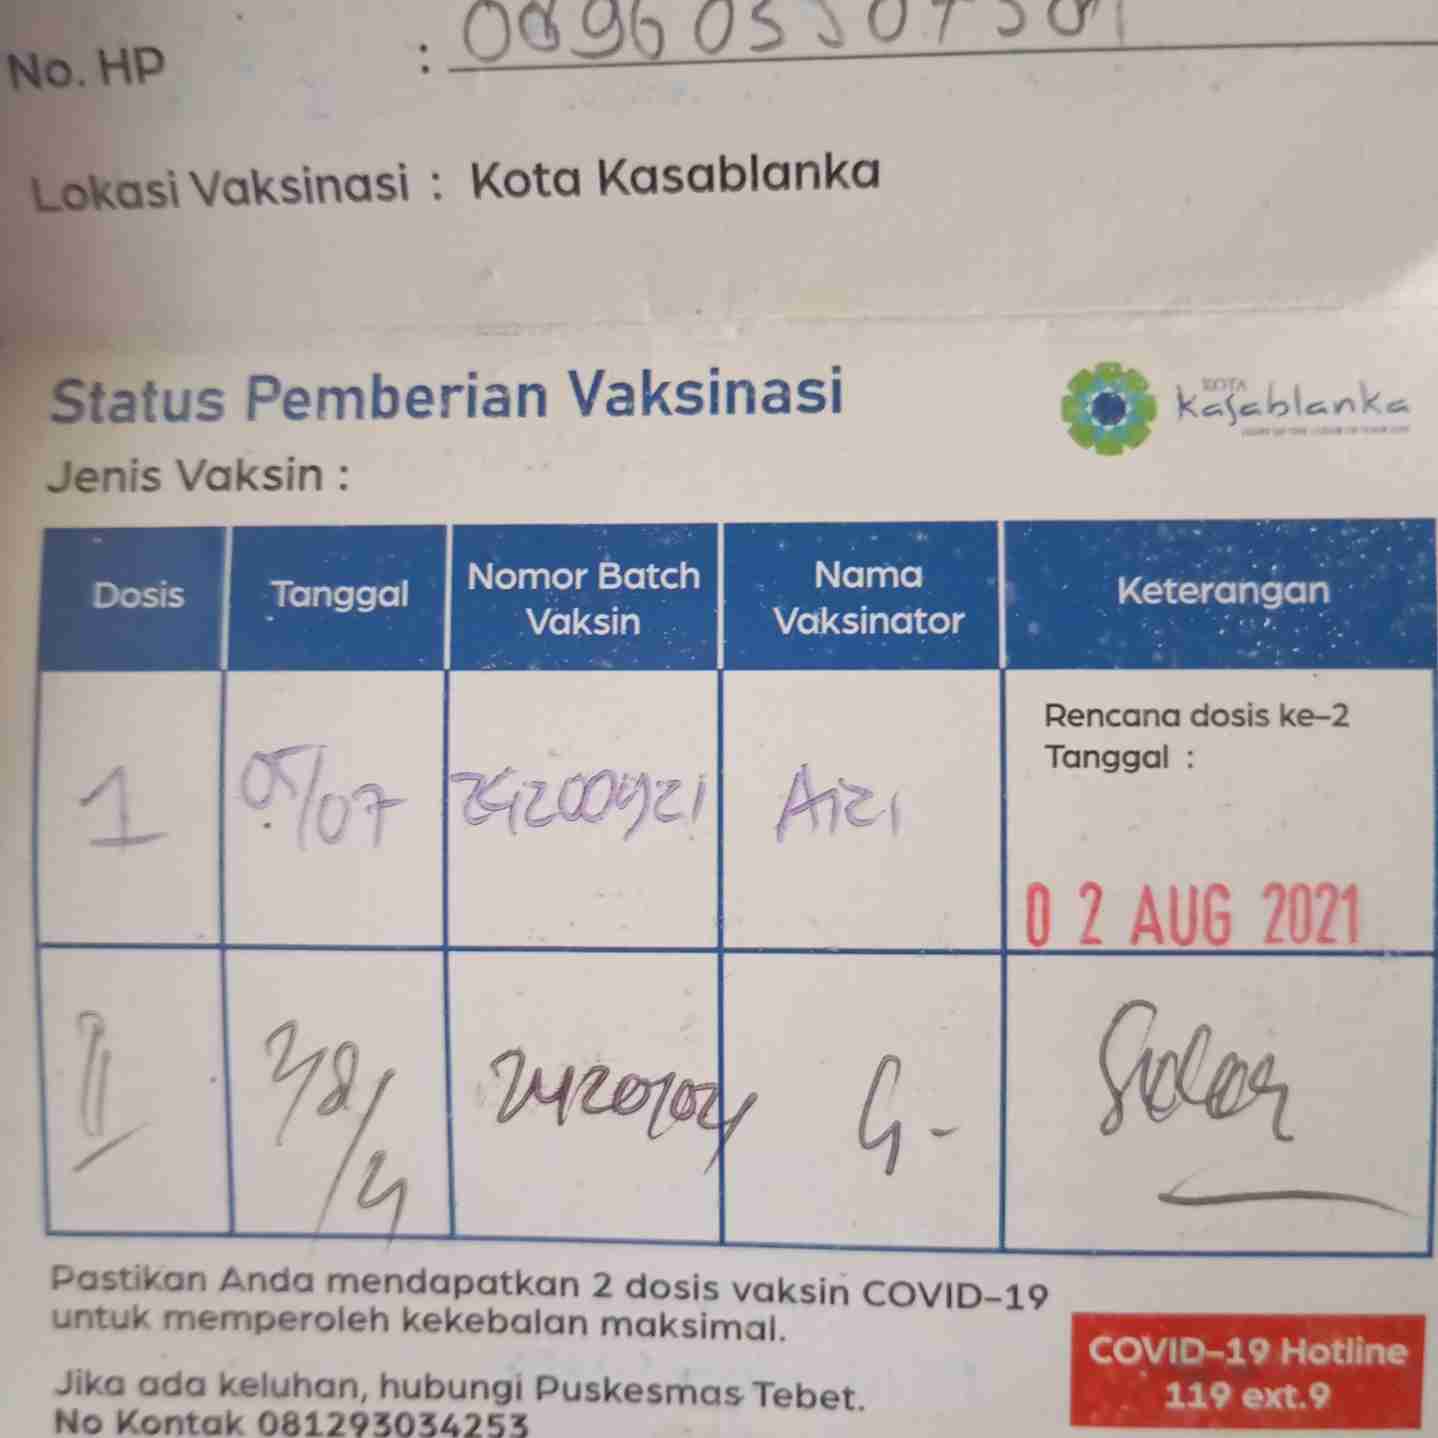 No. HP :
Lokasi Vaksinasi : Kota Kasablanka
Status Pemberian Vaksinasi
KOTA
Kasablanka
Jenis Vaksin :
Dosis Tanggal Nomor Batch Vaksin Nama Vaksinator Keterangan
1 05/07 Aizi
Rencana dosis ke-2
Tanggal :
02 AUG 2021
II
Pastikan Anda mendapatkan 2 dosis vaksin COVID-19
untuk memperoleh kekebalan maksimal.
Jika ada keluhan, hubungi Puskesmas Tebet.
No Kontak 081293034253
COVID-19 Hotline
119 ext.9